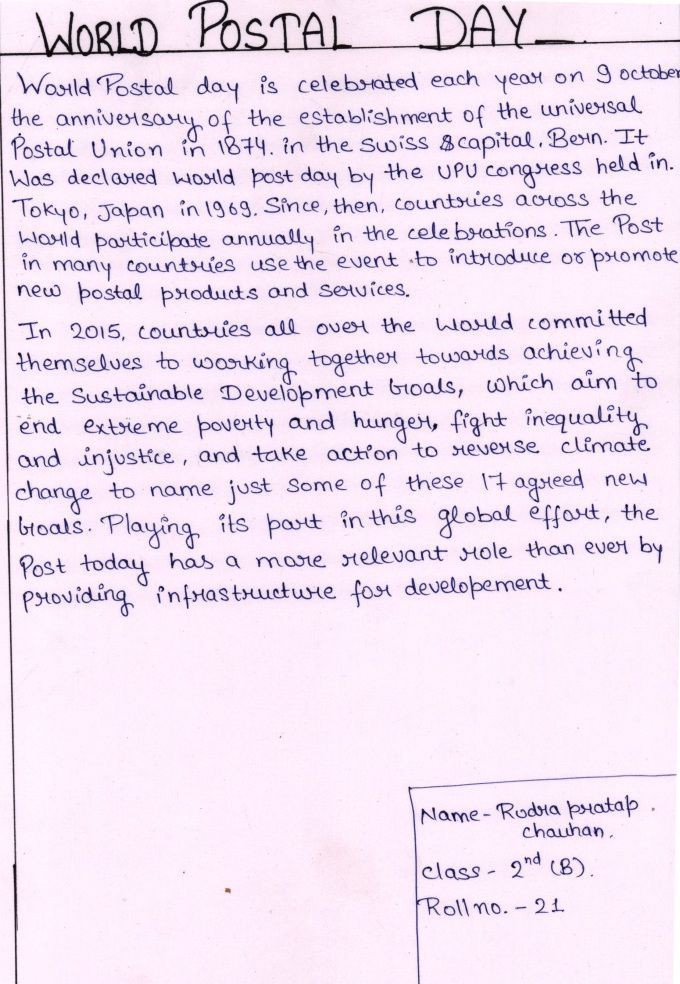 WORLD POSTAL DAY
World Postal day is celebrated each year on 9 october
the anniversary of the establishment of the universal
Postal Union in 1874. in the Swiss & capital, Bern. It
Was declared world post day by the UPU congress held in.
Tokyo, Japan in 1969. Since, then, countries across the
world participate annually in the celebrations. The Post
in many countries use the event to introduce or promote
new postal products and services.
In 2015, countries all over the world committed
themselves to working together towards achieving
the Sustainable Development Goals, which aim to
end extreme poverty and hunger, fight inequality
and injustice, and take action to reverse climate
change to name just some of these 17 agreed new
Goals. Playing its part in this global effort, the
Post today has a more relevant role than ever by
providing infrastructure for developement.
Name - Rudra pratap.
chauhan.
class - 2nd (B).
Roll no. - 21